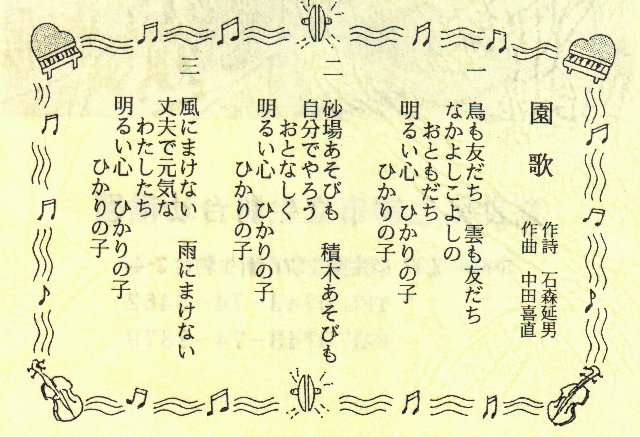 園歌
作詩　石森延男
作曲　中田喜直
一　鳥も友だち　雲も友だち
なかよしこよしの
おともだち
明るい心　ひかりの子
ひかりの子
二　砂場あそびも　積木あそびも
自分でやろう
おとなしく
明るい心　ひかりの子
ひかりの子
三　風にまけない　雨にまけない
丈夫で元気な
わたしたち
明るい心　ひかりの子
ひかりの子